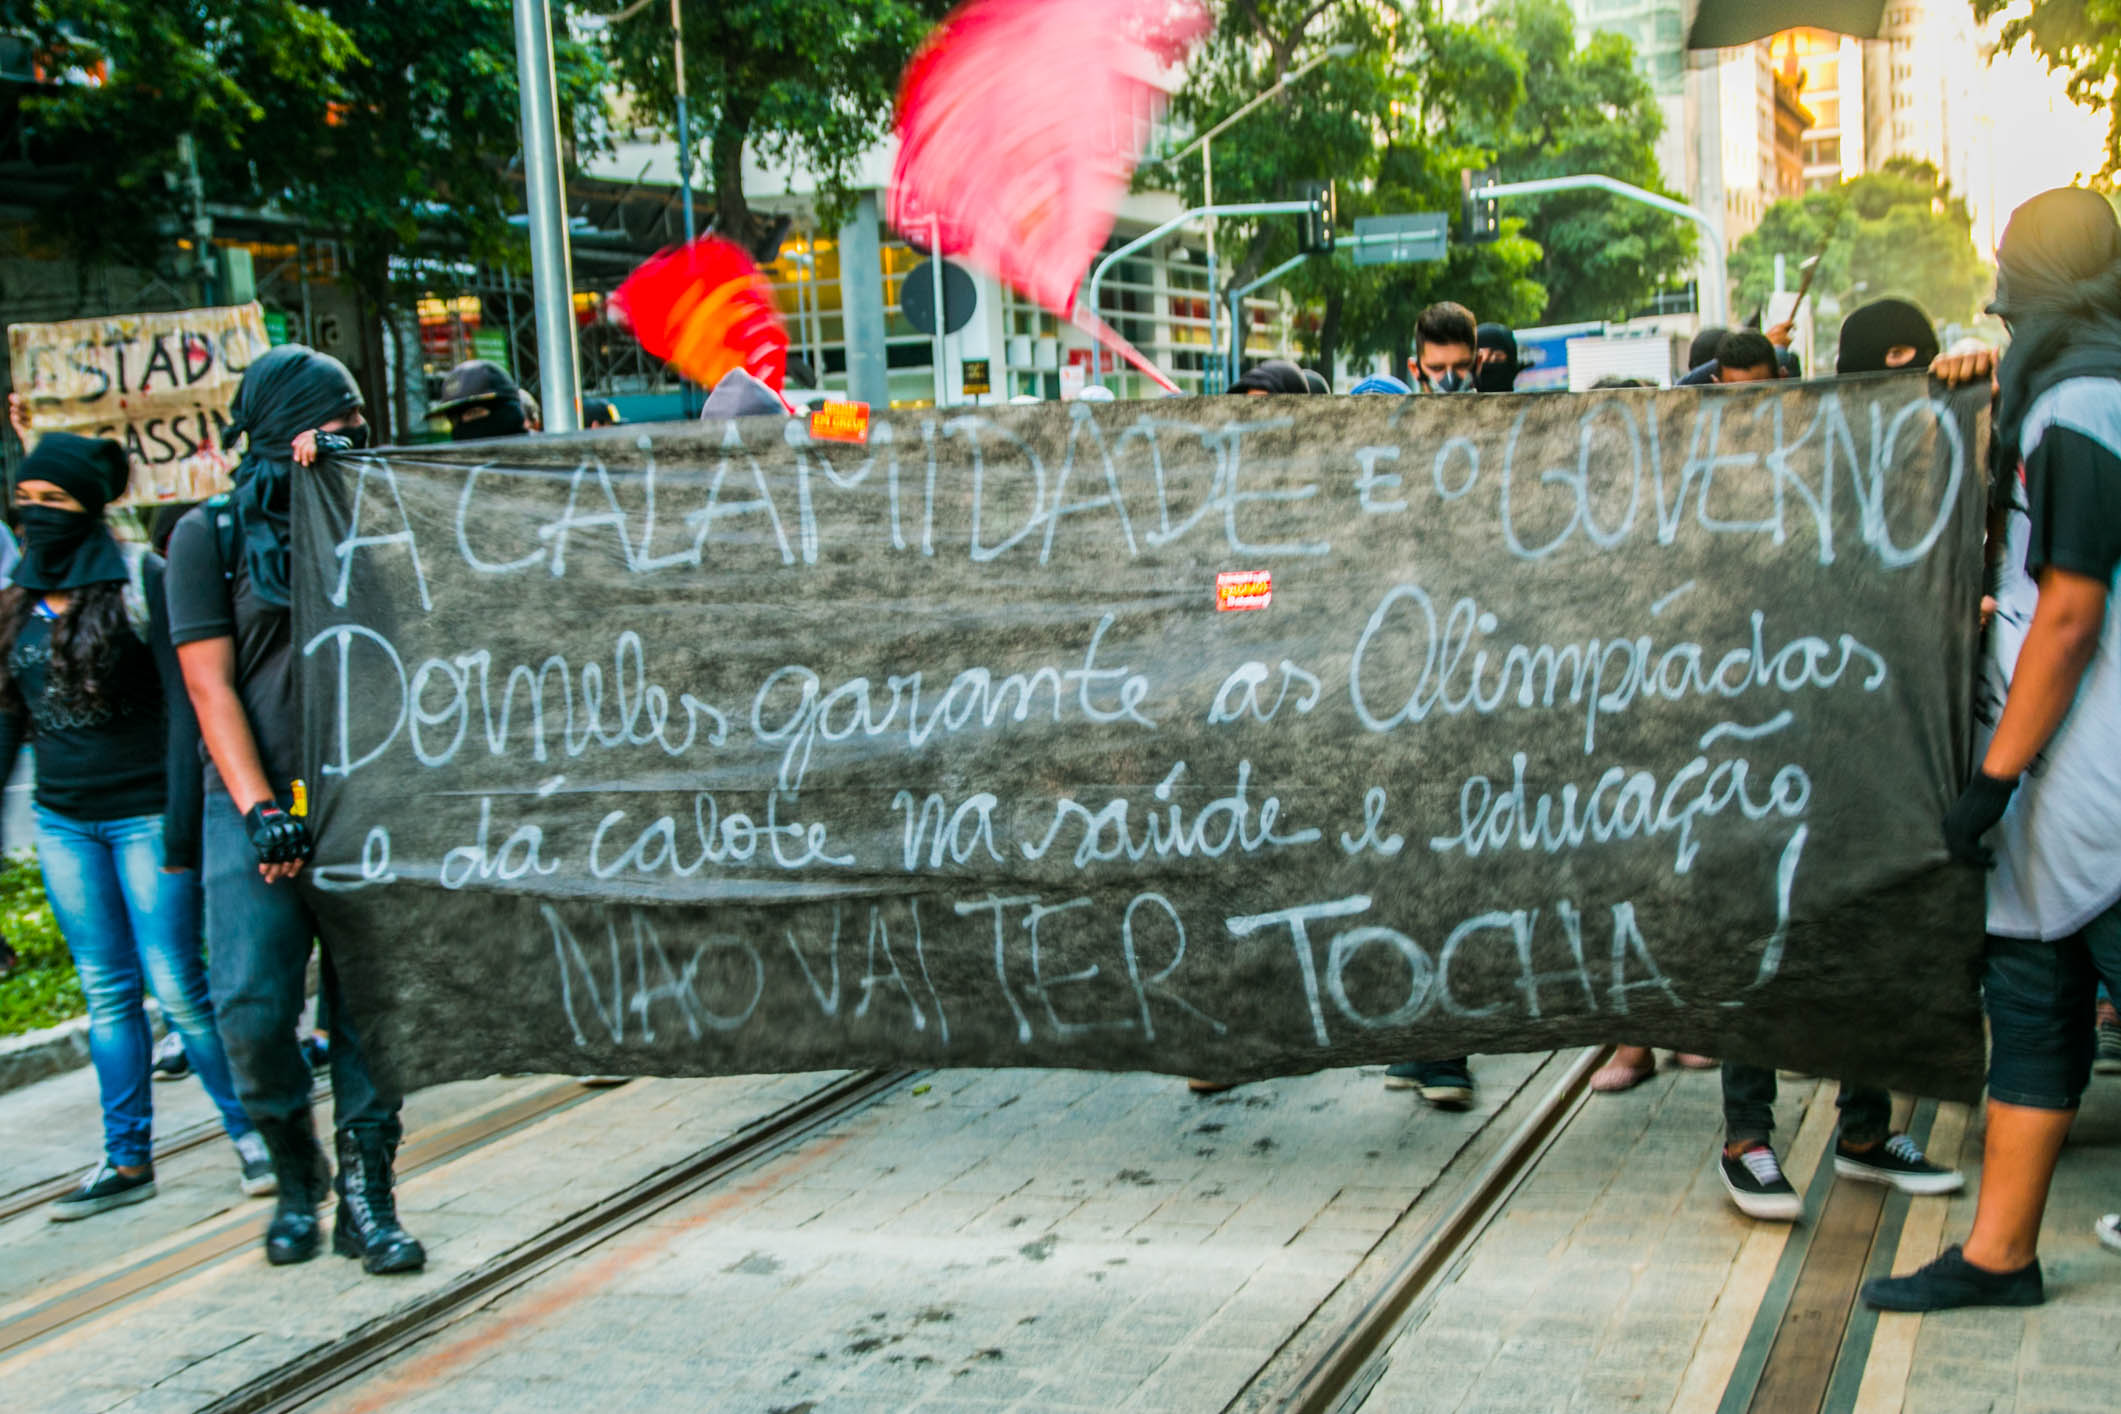 ESTADO
ASSASSIN
A CALAMIDADE É O GOVERNO
Dorneles garante as Olimpíadas
e dá calote na saúde e educação
NÃO VAI TER TOCHA!
EM GREVE
EXIGIMOS